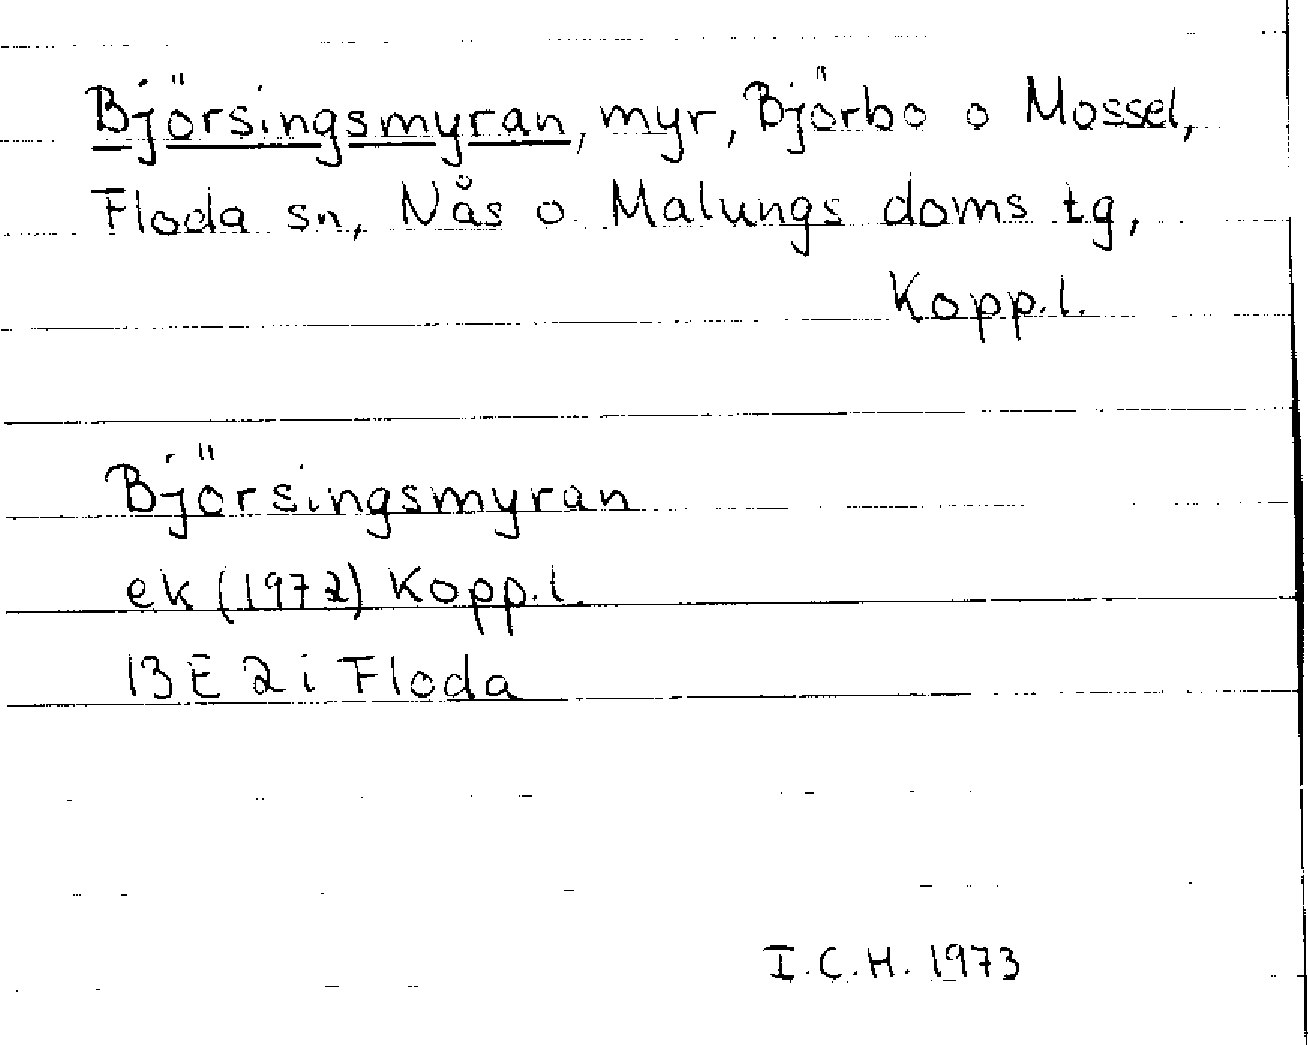 Björsingsmyran, myr, Björbo o Mossel,
Floda sn, Nås o Malungs doms tg,
Kopp.l.
Björsingsmyran
ek (1972) Kopp.l
13E 2i Floda
I.C.H. 1973